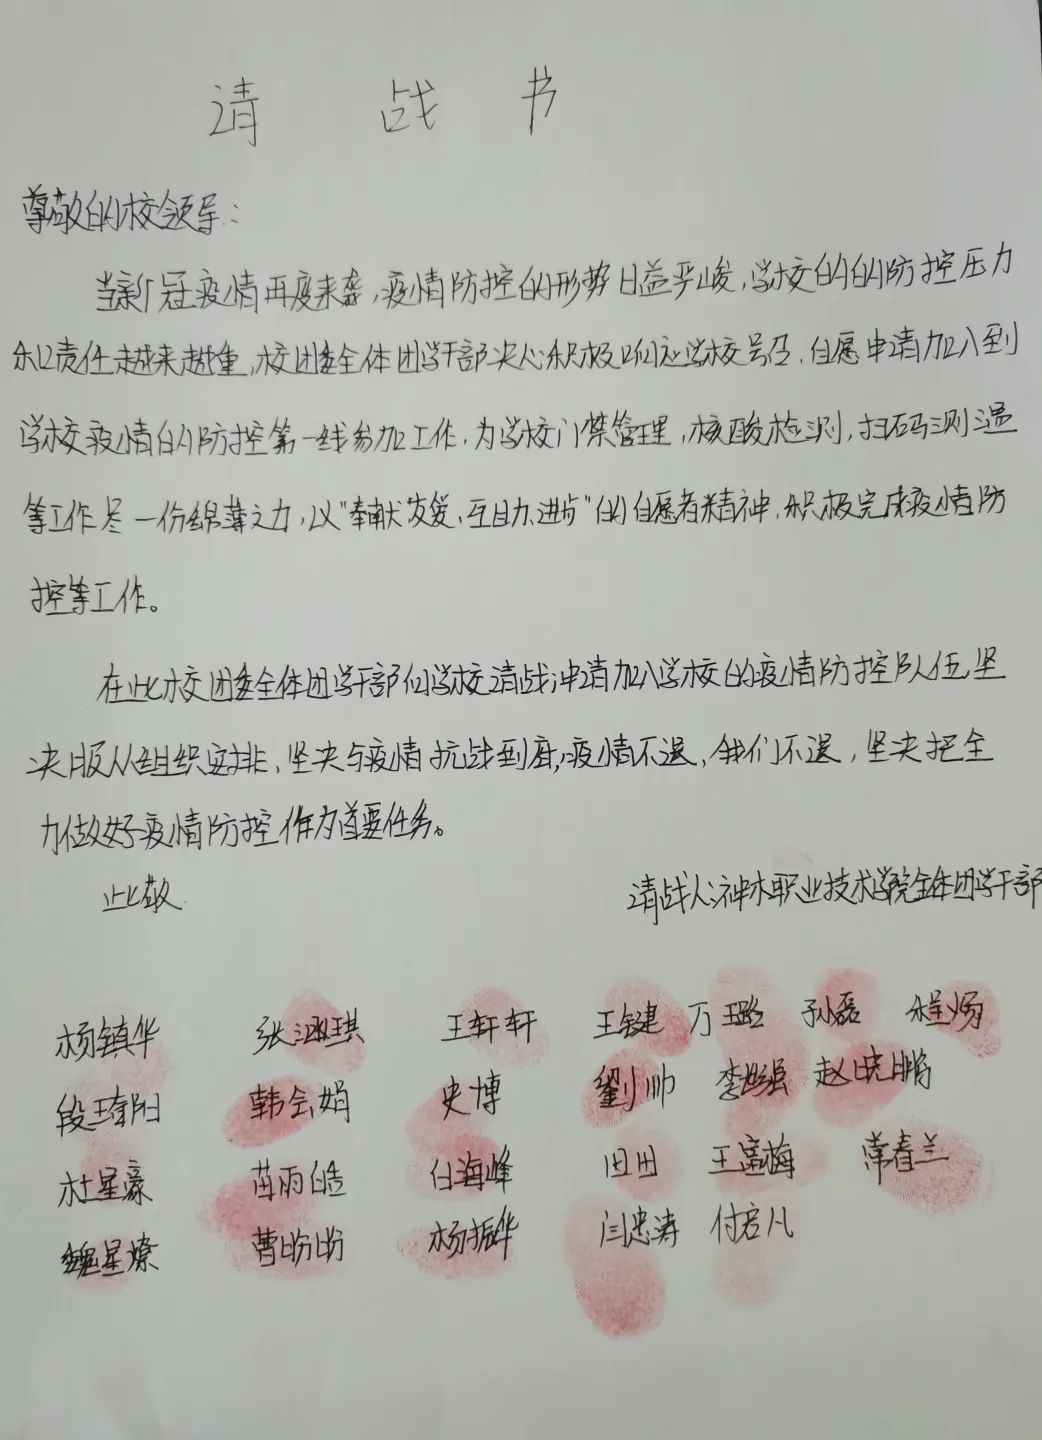 请战书
尊敬的校领导:
当新冠疫情再度来袭,疫情防控的形势日益严峻,学校的的防控压力
和责任越来越重,校团委全体团学干部决心积极响应学校号召,自愿申请加入到
学校疫情的防控第一线参加工作,为学校门禁管理,核酸检测,扫码测温
等工作尽一份绵薄之力,以"奉献友爱、互助进步"的自愿者精神,积极完成疫情防
控等工作。
在此校团委全体团学干部向学校请战:申请加入学校的疫情防控队伍,坚
决服从组织安排、坚决与疫情抗战到底,疫情不退,我们不退,坚决把全
力做好疫情防控作为首要任务。
此敬
请战人:神木职业技术学院全体团学干部
杨镇华 张淑琪 王轩轩 王键 万璐 孙磊 程炀
段琦阳 韩会娟 史博 劉帅 李强 赵晓鹏
杜星豪 苗雨皓 白海峰 田田 王富梅 常春兰
魏星燎 曹盼盼 杨振华 闫忠涛 付若凡